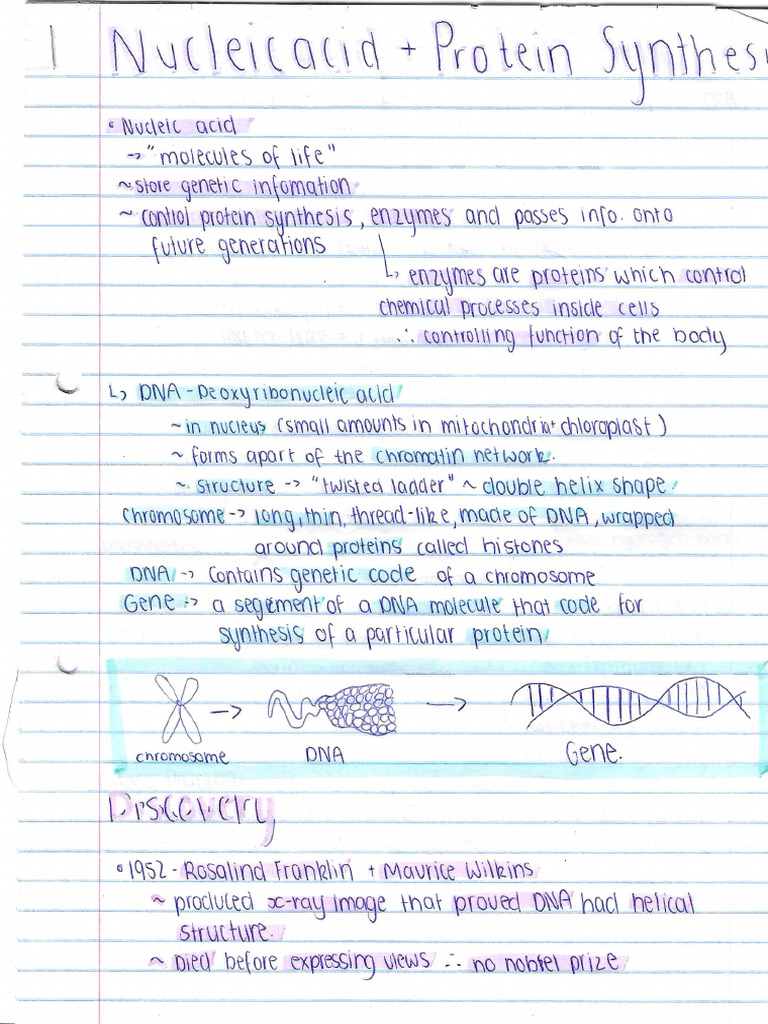 1 Nucleic acid + Protein Synthesi
• Nucleic acid
→ "molecules of life"
~ store genetic infomation
~ control protein synthesis, enzymes and passes info. onto
future generations
↳ enzymes are proteins which control
chemical processes inside cells
∴ controlling function of the body
↳ DNA - Deoxyribonucleic acid
~ in nucleus (small amounts in mitochondria + chloroplast)
~ forms apart of the chromatin network.
~ structure → "twisted ladder" ~ double helix shape.
chromosome → long, thin, thread-like, made of DNA, wrapped
around proteins called histones
DNA → contains genetic code of a chromosome
Gene → a segement of a DNA molecule that code for
synthesis of a particular protein
→ →
chromosome DNA Gene.
Discovery
• 1952 - Rosalind Franklin + Maurice Wilkins
~ produced x-ray image that proved DNA had helical
structure.
~ Died before expressing views ∴ no nobel prize